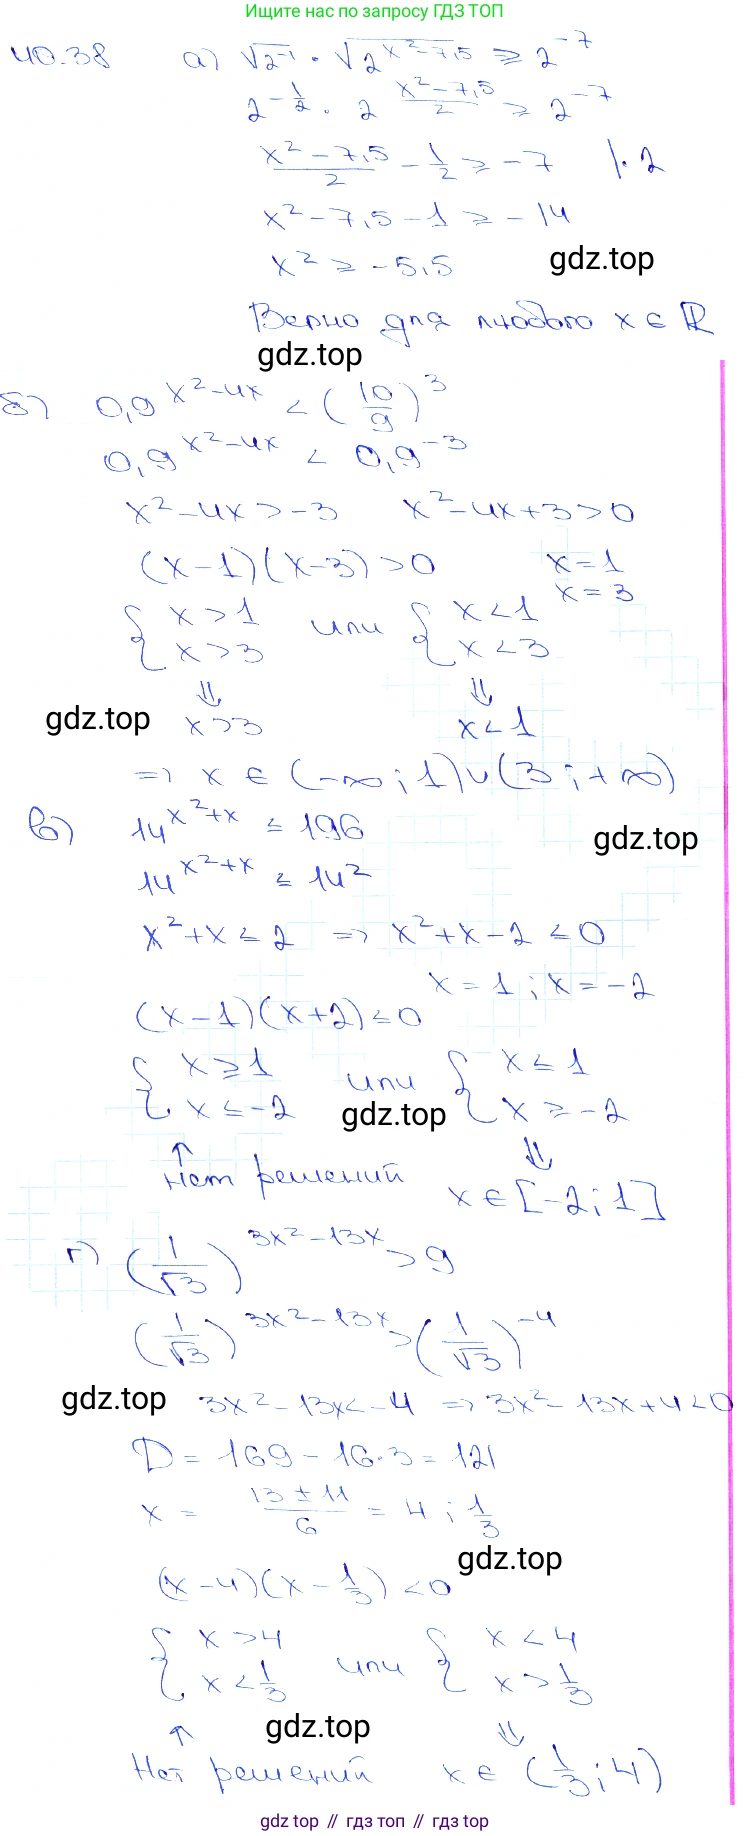 Ищите нас по запросу ГДЗ ТОП
40.38 а) √2⁻¹ · √2^(x²-7,5) ≥ 2⁻⁷
2^(-1/2) · 2^((x²-7,5)/2) ≥ 2⁻⁷
(x²-7,5)/2 - 1/2 ≥ -7 |·2
x²-7,5-1 ≥ -14
x² ≥ -5,5
gdz.top
Верно для любого x ∈ ℝ
gdz.top
б) 0,9^(x²-4x) < (10/9)³
0,9^(x²-4x) < 0,9⁻³
x²-4x > -3 x²-4x+3>0
(x-1)(x-3)>0 x=1
x=3
{x>1 или {x<1
x>3 x<3
⇓ ⇓
gdz.top x>3 x<1
⇒ x ∈ (-∞;1)∪(3;+∞)
в) 14^(x²+x) ≤ 196
gdz.top
14^(x²+x) ≤ 14²
x²+x ≤ 2 ⇒ x²+x-2 ≤ 0
x=1; x=-2
(x-1)(x+2) ≤ 0
{x≥1 или {x≤1
x≤-2 x≥-2
gdz.top
↑ ⇓
Нет решений x∈[-2;1]
г) (1/√3)^(3x²-13x) > 9
(1/√3)^(3x²-13x) > (1/√3)⁻⁴
gdz.top 3x²-13x<-4 ⇒ 3x²-13x+4<0
D = 169-16·3 = 121
x = (13±11)/6 = 4; 1/3
gdz.top
(x-4)(x-1/3)<0
{x>4 или {x<4
x<1/3 x>1/3
↑ gdz.top ⇓
Нет решений x ∈ (1/3;4)
gdz top // гдз топ // gdz top